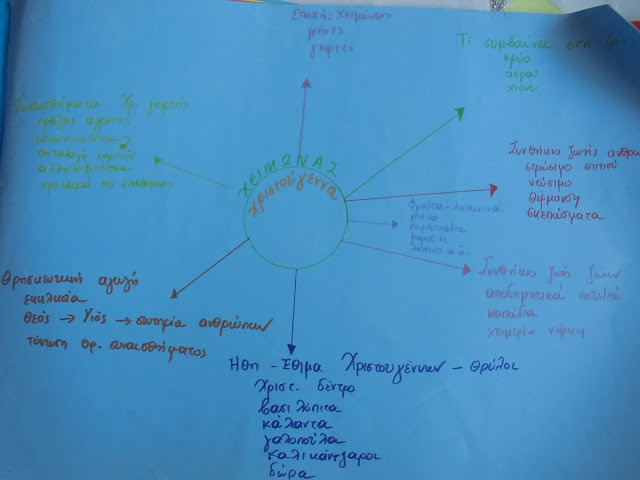 Εποχή: Χειμώνας
μήνες
γιορτές
Τι συμβαίνει στη
κρύο
αέρας
χιόνι
Συναισθήματα Χρ. γιορτής
πράξεις αγάπης
επισκεπτήρια
ανταλλαγή ευχών
αλληλοβοήθεια
ΧΕΙΜΩΝΑΣ
Χριστούγεννα
Συνθήκες ζωής ανθρώ
στρώσιμο σπιτιού
ντύσιμο
θέρμανση
σκεπάσματα
Φρούτα - λαχανικά
μήλα
πορτοκάλια
μαρούλι
λάχανο κ.ά.
Συνθήκες ζωής ζώων
αποδημητικά πουλιά
κοπάδια
χειμερία νάρκη
Θρησκευτική αγωγή
εκκλησία
Θεός → Υιός → σωτηρία ανθρώπων
τόνωση θρ. συναισθήματος
Ήθη - Έθιμα Χριστουγέννων - Θρύλοι
Χριστ. δέντρο
βασιλόπιτα
κάλαντα
γαλοπούλα
καλικάντζαροι
δώρα